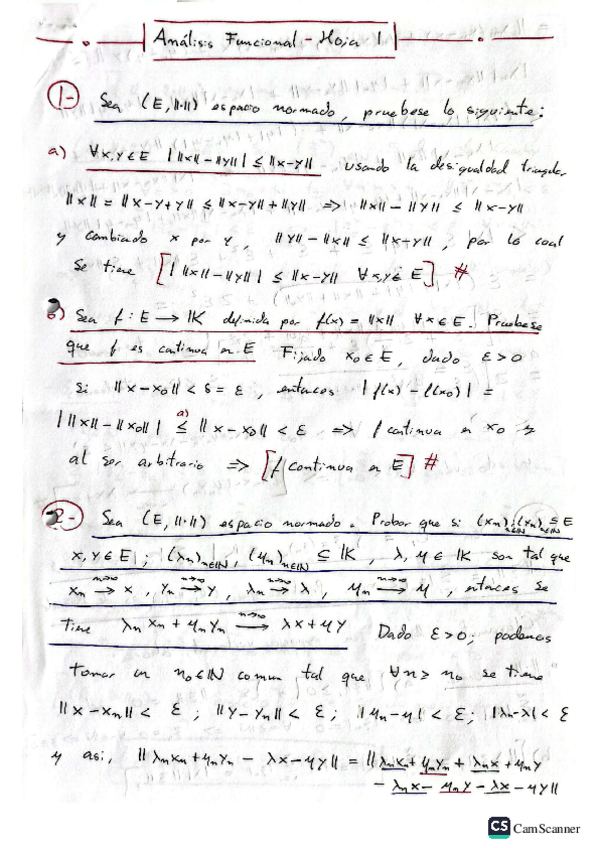 Análisis Funcional - Hoja 1
1- Sea (E, ||·||) espacio normado, pruebese lo siguiente:
a) ∀x,y ∈ E | ||x|| - ||y|| | ≤ ||x-y|| usando la desigualdad triangular
||x|| = ||x-y+y|| ≤ ||x-y|| + ||y|| ⇒ ||x|| - ||y|| ≤ ||x-y||
y cambiando x por y, ||y|| - ||x|| ≤ ||x-y||, por lo cual
se tiene [ | ||x|| - ||y|| | ≤ ||x-y|| ∀x,y ∈ E ] #
b) Sea f: E → IK definida por f(x) = ||x|| ∀x ∈ E. Pruebese
que f es continua en E Fijado x₀ ∈ E, dado ε>0
si ||x-x₀|| < δ = ε, entonces |f(x) - f(x₀)| =
| ||x|| - ||x₀|| | ≤ a) ||x-x₀|| < ε ⇒ f continua en x₀ y
al ser arbitrario ⇒ [f continua en E] #
2- Sea (E, ||·||) espacio normado. Probar que si (xₙ)n∈IN, (yₙ)n∈IN ⊆ E
x, y ∈ E; (λₙ)n∈IN, (μₙ)n∈IN ⊆ IK, λ, μ ∈ IK son tal que
xₙ →n→∞ x, yₙ →n→∞ y, λₙ →n→∞ λ, μₙ →n→∞ μ, entonces se
tiene λₙxₙ + μₙyₙ →n→∞ λx + μy Dado ε>0; podemos
tomar un n₀ ∈ IN comun tal que ∀n > n₀ se tiene
||x-xₙ|| < ε; ||y-yₙ|| < ε; |μₙ-μ| < ε; |λₙ-λ| < ε
y asi, ||λₙxₙ + μₙyₙ - λx - μy|| = ||λₙxₙ + μₙyₙ + λₙx + μₙy
- λₙx - μₙy - λx - μy||
CS CamScanner